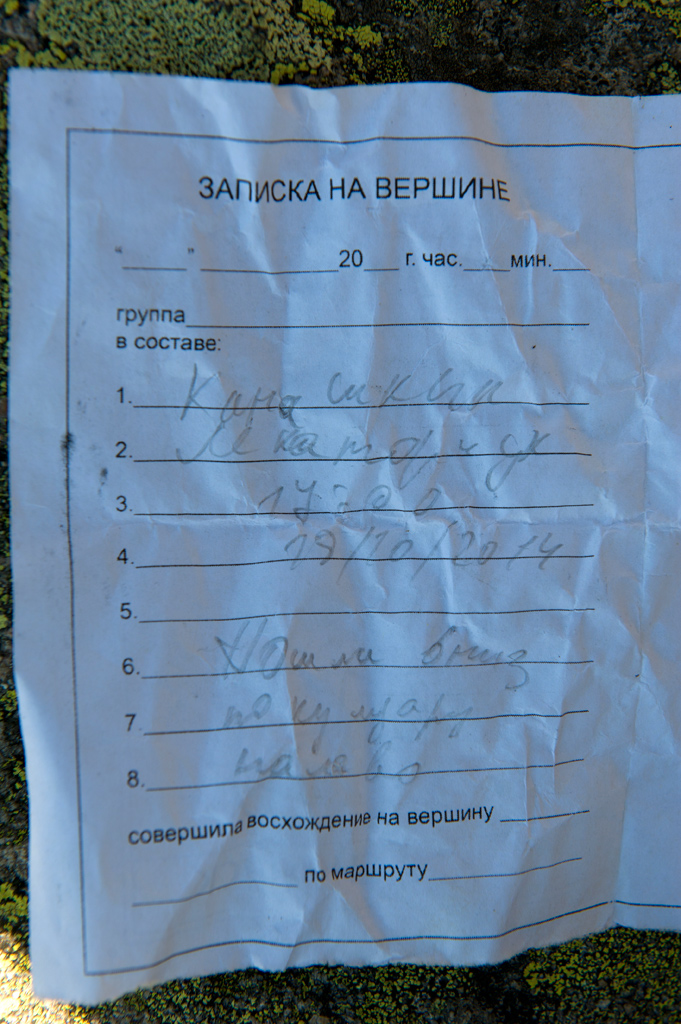 ЗАПИСКА НА ВЕРШИНЕ
"____" ________ 20__ г. час.___мин.___
группа
в составе:
1.
2.
3. 17:00
4. 19/10/2014
5.
6. Пошли вниз
7. по кулуару
8. налево
совершила восхождение на вершину
по маршруту